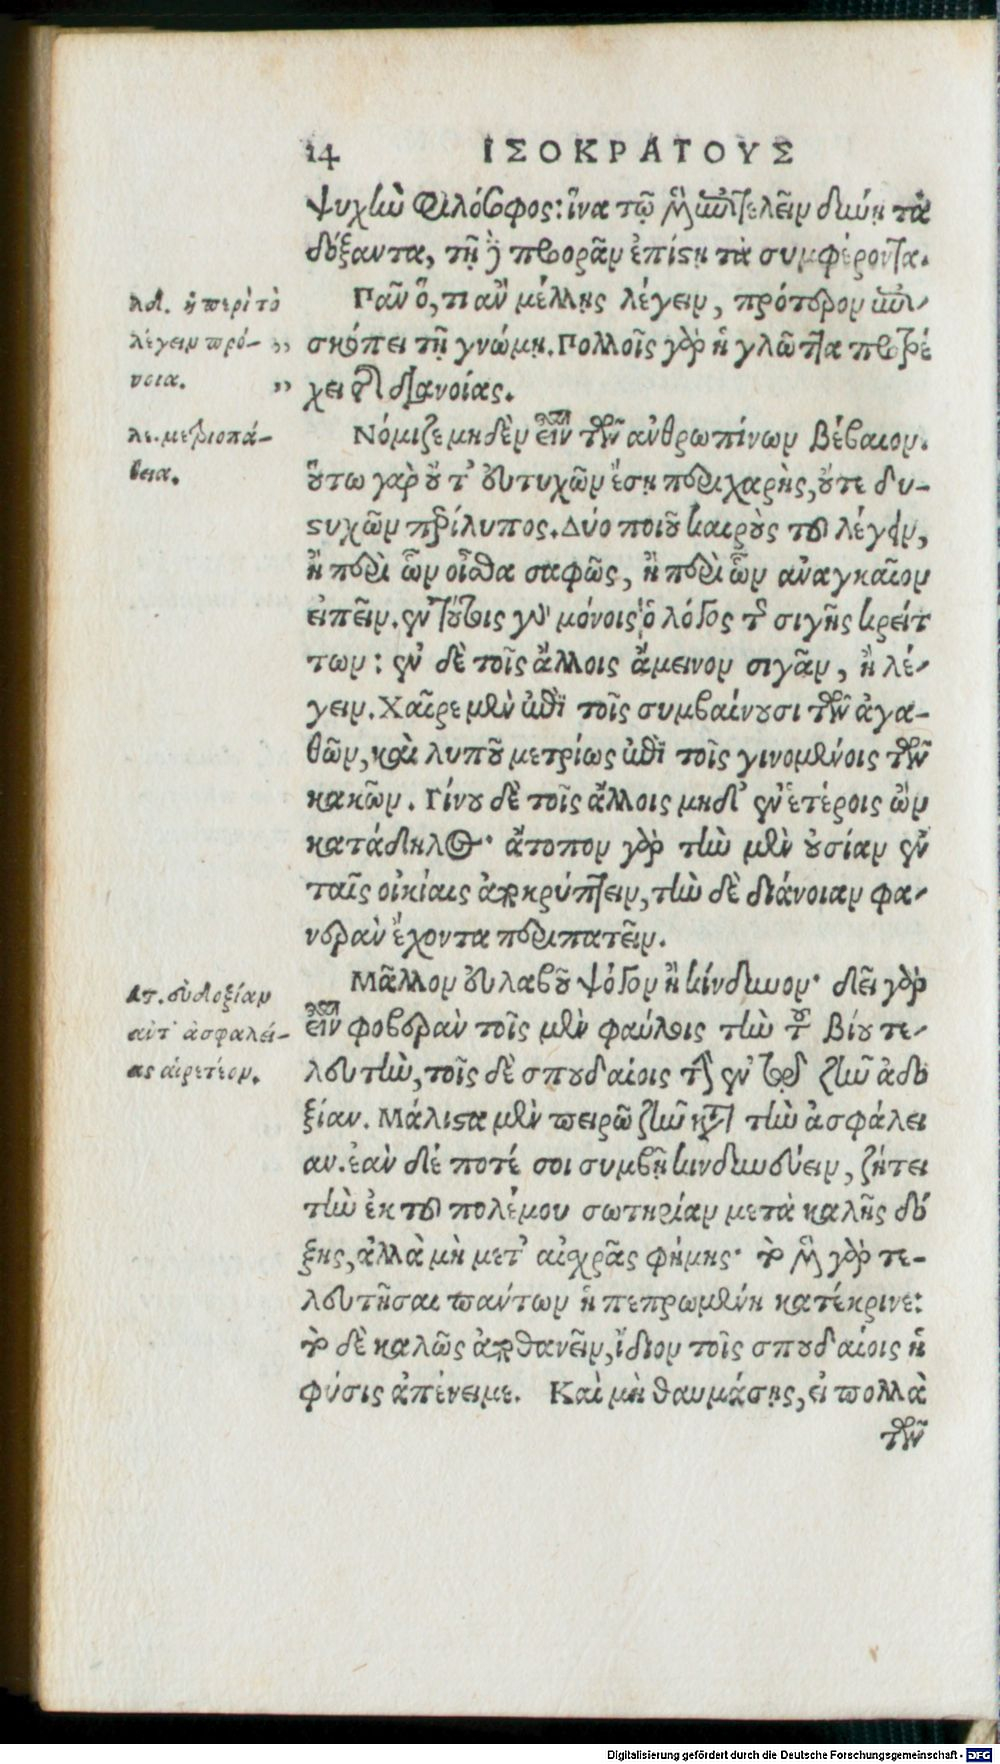 14 ΙΣΟΚΡΑΤΟΥΣ
ψυχὴν φιλόσοφος: ἵνα τῷ μὲν ἐπιτελεῖν δύνῃ τὰ
δόξαντα, τῇ δὲ προορᾶν ἐπίστῃ τὰ συμφέροντα.
Πᾶν ὅ, τι ἂν μέλλῃς λέγειν, πρότερον ἐπι-
σκόπει τῇ γνώμῃ. Πολλοῖς γὰρ ἡ γλῶττα προτρέ
χει τῆς διανοίας.
λδ. ἡ περὶ τὸ
λέγειν πρό-
νοια.
Νόμιζε μηδὲν εἶναι τῶν ἀνθρωπίνων βέβαιον.
οὕτω γὰρ οὔτ' εὐτυχῶν ἔσῃ περιχαρὴς, οὔτε δυ-
στυχῶν περίλυπος. Δύο ποιοῦ καιροὺς τοῦ λέγειν,
ἢ περὶ ὧν οἶσθα σαφῶς, ἢ περὶ ὧν ἀναγκαῖον
εἰπεῖν. ἐν τούτοις γὰρ μόνοις ὁ λόγος τῆς σιγῆς κρείτ
των: ἐν δὲ τοῖς ἄλλοις ἄμεινον σιγᾶν, ἢ λέ-
γειν. Χαῖρε μὲν ἐπὶ τοῖς συμβαίνουσι τῶν ἀγα-
θῶν, καὶ λυποῦ μετρίως ἐπὶ τοῖς γινομένοις τῶν
κακῶν. Γίνου δὲ τοῖς ἄλλοις μηδ' ἐν ἑτέροις ὢν
κατάδηλος· ἄτοπον γὰρ τὴν μὲν οὐσίαν ἐν
ταῖς οἰκίαις ἀποκρύπτειν, τὴν δὲ διάνοιαν φα-
νερὰν ἔχοντα περιπατεῖν.
λε. μετριοπά-
θεια.
Μᾶλλον εὐλαβοῦ ψόγον ἢ κίνδυνον· δεῖ γὰρ
εἶναι φοβερὰν τοῖς μὲν φαύλοις τὴν τοῦ βίου τε-
λευτὴν, τοῖς δὲ σπουδαίοις τὴν ἐν τῷ ζῆν ἀδο
ξίαν. Μάλιστα μὲν πειρῶ ζῆν κατὰ τὴν ἀσφάλει
αν. ἐὰν δέ ποτέ σοι συμβῇ κινδυνεύειν, ζήτει
τὴν ἐκ τοῦ πολέμου σωτηρίαν μετὰ καλῆς δό
ξης, ἀλλὰ μὴ μετ' αἰσχρᾶς φήμης· τὸ μὲν γὰρ τε-
λευτῆσαι πάντων ἡ πεπρωμένη κατέκρινε:
τὸ δὲ καλῶς ἀποθανεῖν, ἴδιον τοῖς σπουδαίοις ἡ
φύσις ἀπένειμε. Καὶ μὴ θαυμάσῃς, εἰ πολλὰ
τῶν
εὐδοξίαν
ἀντ' ἀσφαλεί-
ας αἱρετέον.
Digitalisierung gefördert durch die Deutsche Forschungsgemeinschaft - DFG